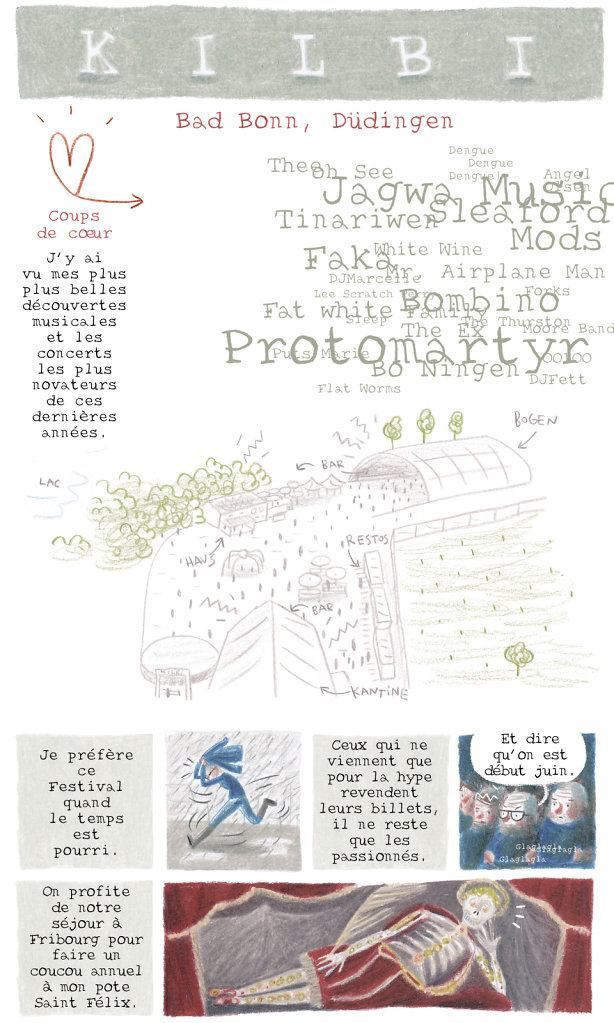 KILBI
Bad Bonn, Düdingen
Coups
de cœur
J'y ai
vu mes plus
plus belles
découvertes
musicales
et les
concerts
les plus
novateurs
de ces
dernières
années.
Dengue
Dengue
Dengue!
Thee
oh See
Angel
Olsen
Jagwa Music
Tinariwen
Sleaford
Mods
White Wine
Faka
Mr. Airplane Man
DJMarcelle
Lee Scratch Perry
Forks
Bombino
Fat white Family
Sleep
The Thurston
Moore Band
The Ex
Protomartyr
Puts Marie
OOIOO
Bo Ningen
DJFett
Flat Worms
BOGEN
BAR
LAC
HAUS
RESTOS
BAR
KILBI
KANTINE
Je préfère
ce
Festival
quand
le temps
est
pourri.
Ceux qui ne
viennent que
pour la hype
revendent
leurs billets,
il ne reste
que les
passionnés.
Et dire
qu'on est
début juin.
Glaglagla
Glaglagla
Glaglagla
On profite
de notre
séjour à
Fribourg pour
faire un
coucou annuel
à mon pote
Saint Félix.